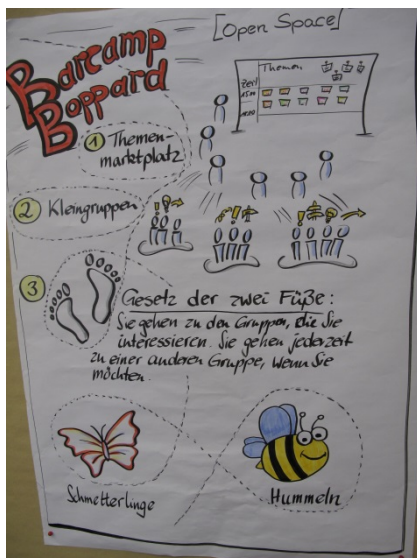 [Open Space]
Barcamp
Boppard
Zeit
Themen
15.00
① Themen-
marktplatz
② Kleingruppen
③
Gesetz der zwei Füße:
Sie gehen zu den Gruppen, die Sie
interessieren. Sie gehen jederzeit
zu einer anderen Gruppe, wenn Sie
möchten.
Schmetterlinge
Hummeln